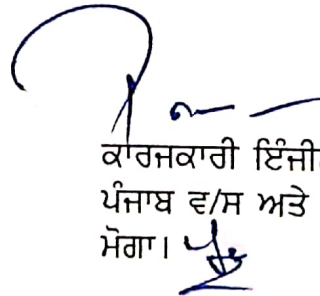 ਕਾਰਜਕਾਰੀ ਇੰਜੀ
ਪੰਜਾਬ ਵ/ਸ ਅਤੇ
ਮੋਗਾ।